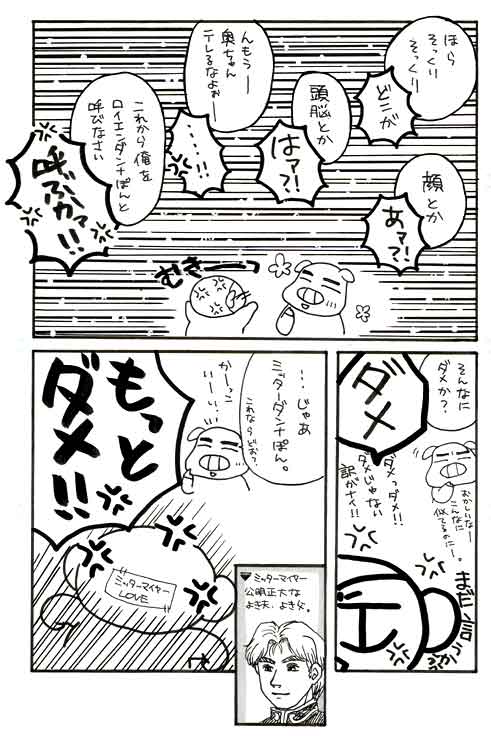 ほら
そっくり
そっくり
どこが
顔とか
あァ?!
頭脳とか
はァ?!
んもうー
奥ちゃん
テレるなよぉー
…!!
これから俺を
ロイエンダンナぽんと
呼びなさい
呼ぶかァ!!
むきーーっ
そんなに
ダメか?
ダメ
おかしいなー
こんなに
似てるのにー。
ダメっダメ!!
ダメじゃない
訳がナイ!!
まだ言うか
…じゃあ
ミッターダンナぽん。
これならどお?
かーっこ
いーい。
もっと
ダメ!!
ミッターマイヤー
LOVE
▼ミッターマイヤー
公明正大な
よき夫、よきパパ。